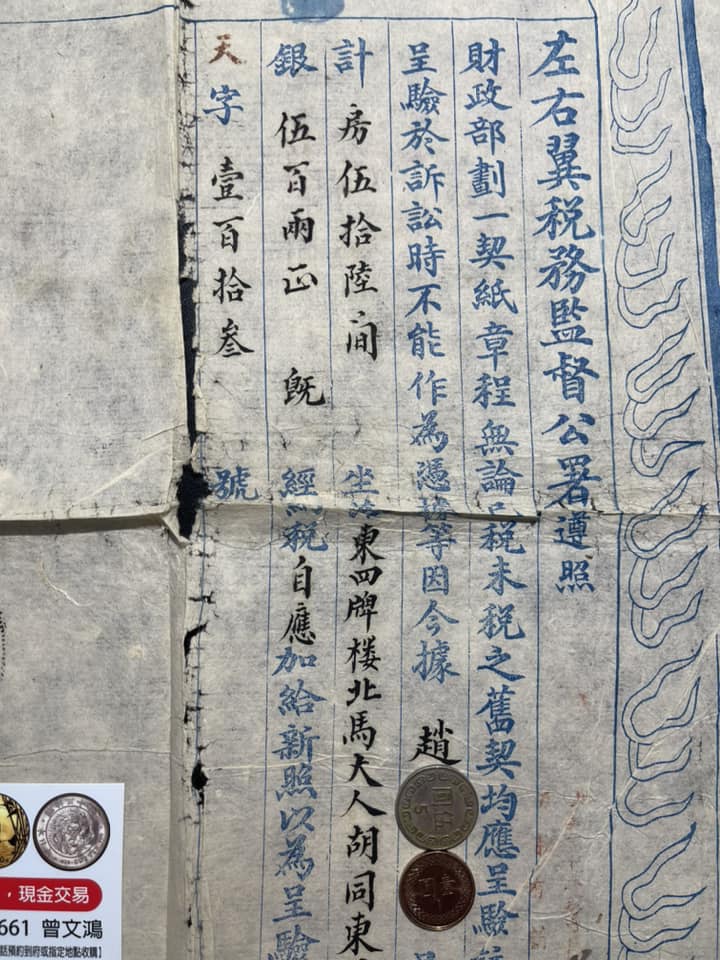 左右翼税務監督公署遵照
財政部劃一契紙章程無論已税未税之舊契均應呈驗
呈驗於訴訟時不能作為憑據等因今據 趙
計 房伍拾陸間 坐落東四牌楼北馬大人胡同東
銀 伍百兩正 既經納税自應加給新照以為呈驗
天字 壹百拾叁 號
，現金交易
661 曾文鴻
話預約到府或指定地點收購】